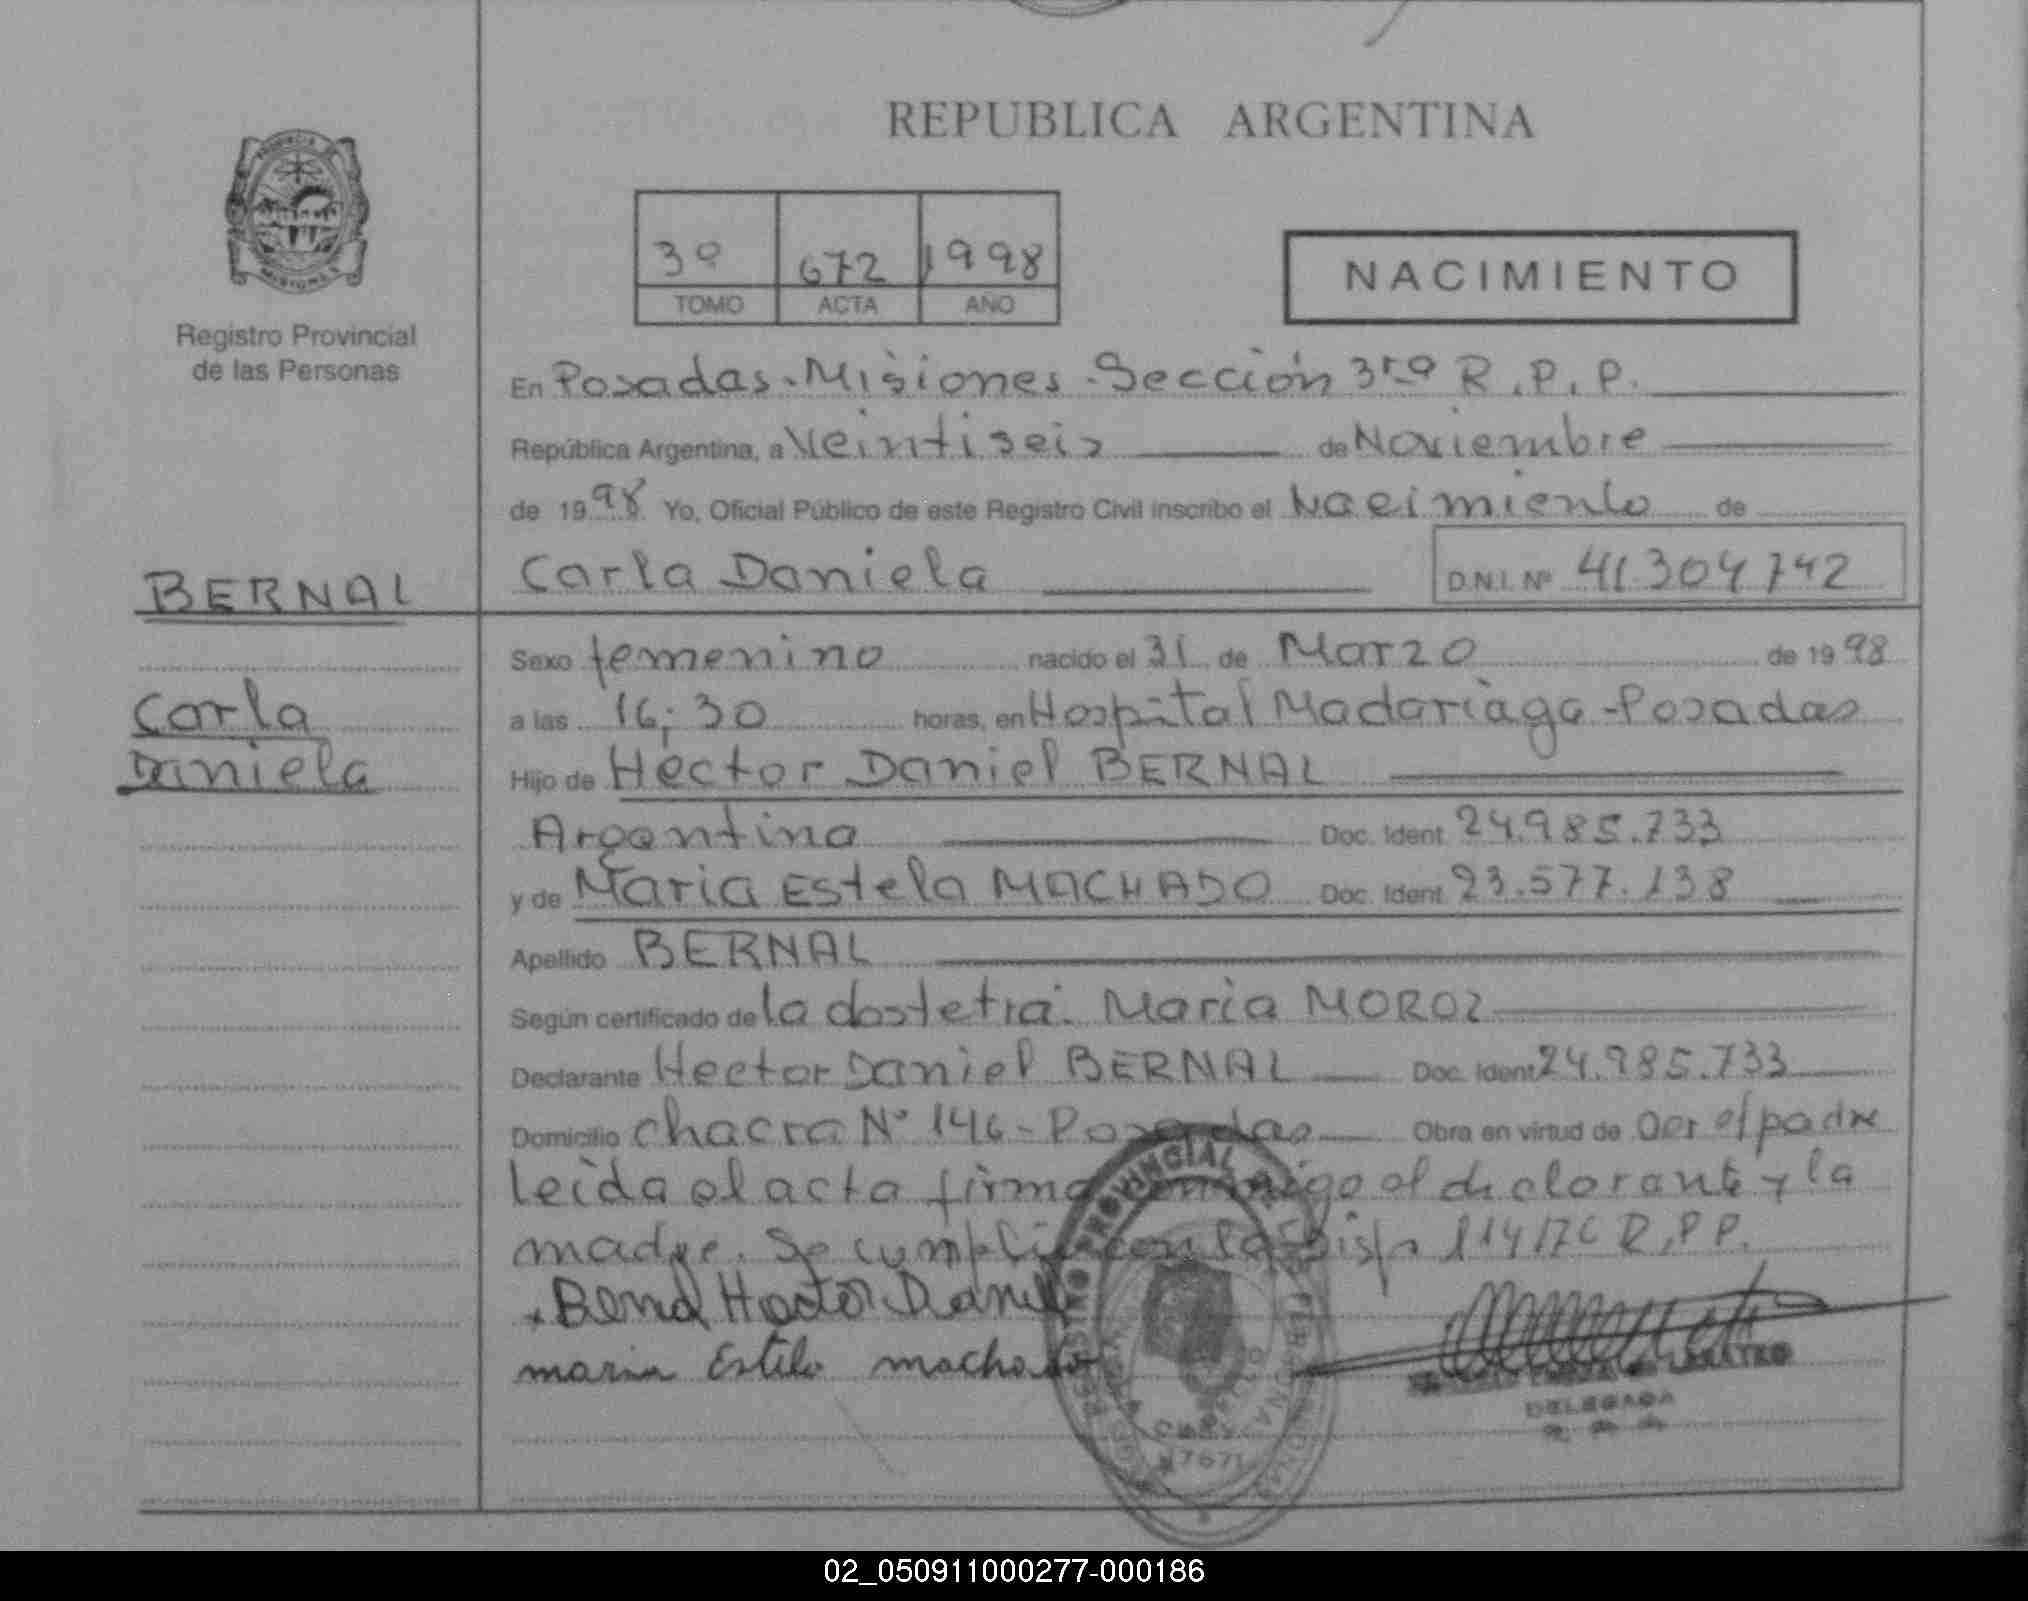 REPUBLICA ARGENTINA
3º 672 1998
TOMO ACTA AÑO
NACIMIENTO
Registro Provincial
de las Personas
En Posadas-Misiones-Sección 3ra R.P.P.
República Argentina, a Veintiseis de Noviembre
de 1998 Yo, Oficial Público de este Registro Civil inscribo el Nacimiento de
Carla Daniela D.N.I. Nº 41.304742
BERNAL
Carla
Daniela
Sexo femenino nacido el 31 de Marzo de 1998
a las 16;30 horas, en Hospital Madariaga-Posadas
Hijo de Hector Daniel BERNAL
Argentina Doc. Ident. 24.985.733
y de Maria Estela MACHADO Doc. Ident. 23.577.138
Apellido BERNAL
Según certificado de la Maria MOROZ
Declarante Hector Daniel BERNAL Doc. Ident 24.985.733
Domicilio chacra Nº 146-Posadas Obra en virtud de ser el padre
leida el acta firma conmigo el declarante y la
madre. Se cumplió con la Disp R.P.P.
Hector Daniel
maria Estela machado
REGISTRO PROVINCIAL DE
DELEGADA
02_050911000277-000186